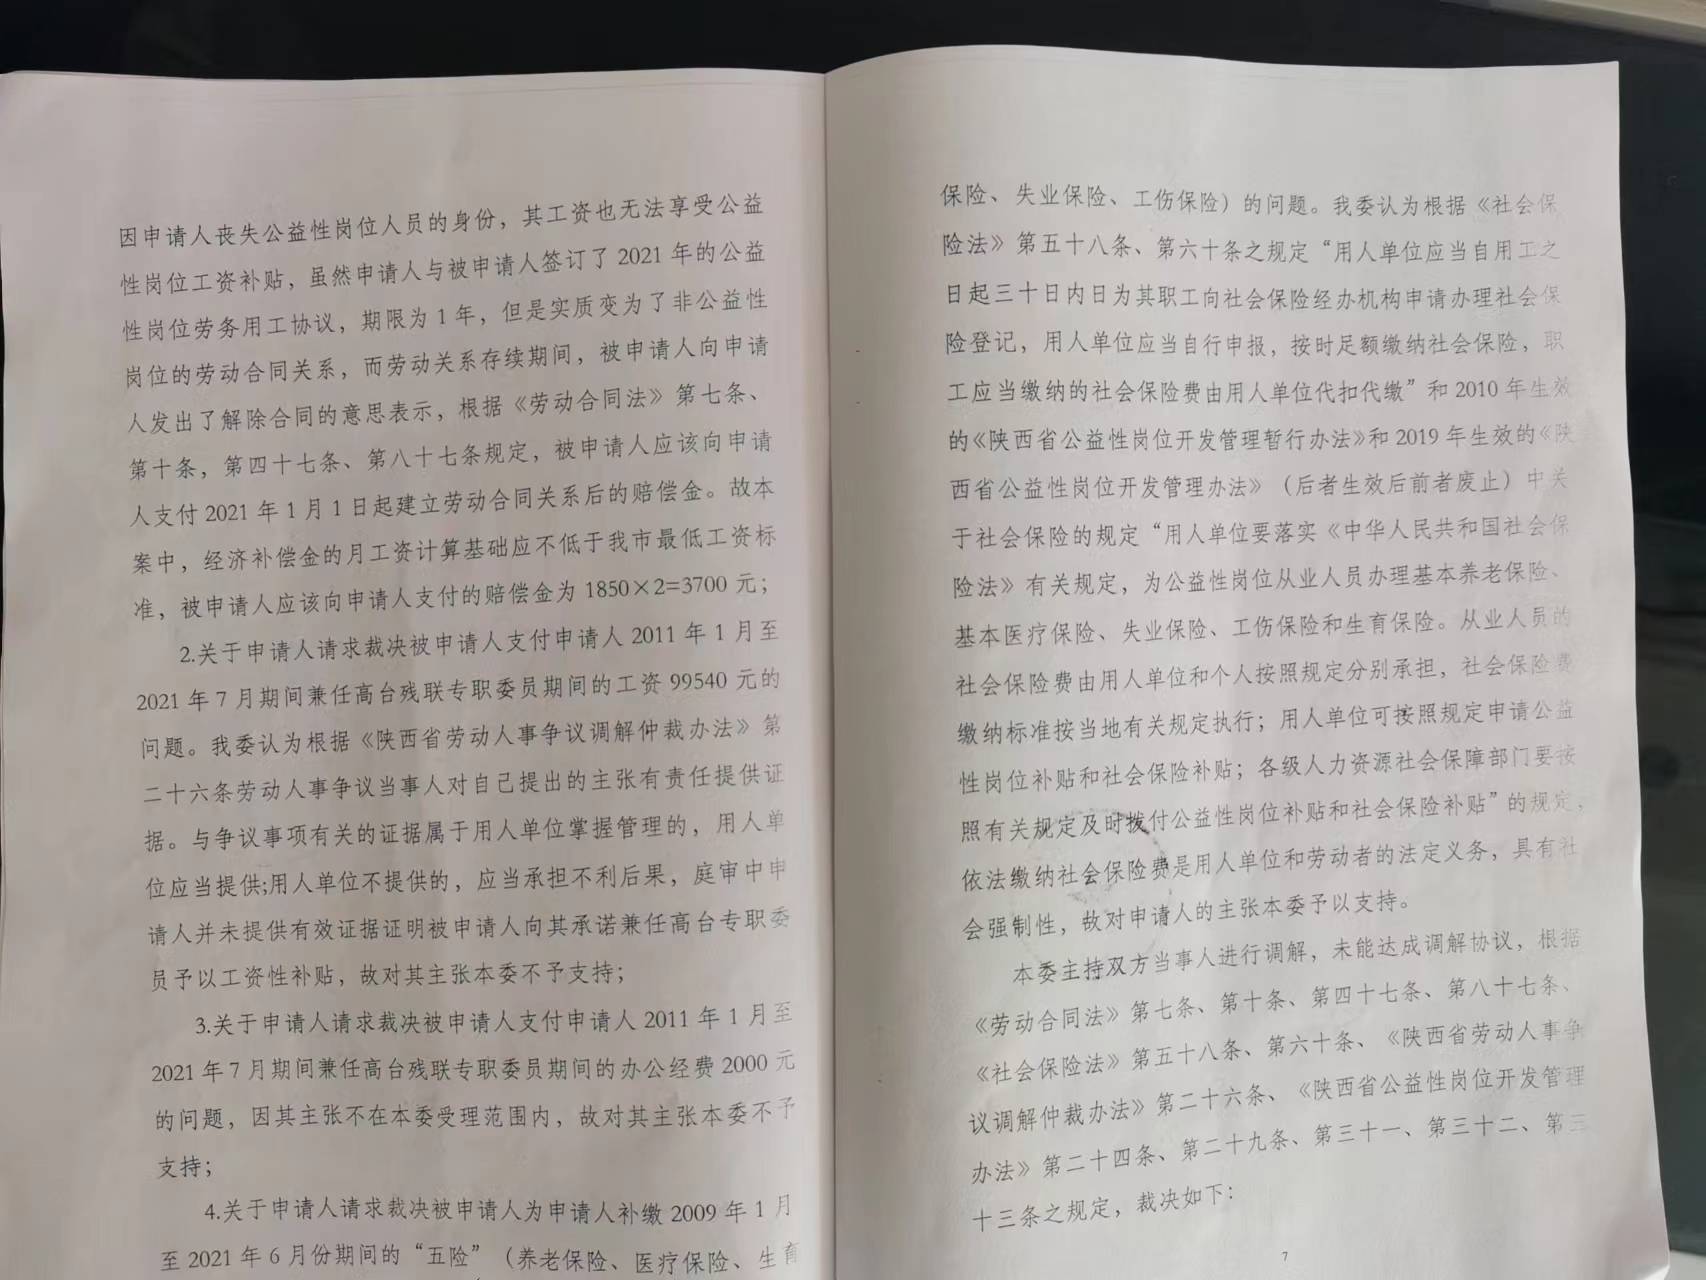 因申请人丧失公益性岗位人员的身份，其工资也无法享受公益
性岗位工资补贴，虽然申请人与被申请人签订了 2021 年的公益
性岗位劳务用工协议，期限为 1 年，但是实质变为了非公益性
岗位的劳动合同关系，而劳动关系存续期间，被申请人向申请
人发出了解除合同的意思表示，根据《劳动合同法》第七条、
第十条，第四十七条、第八十七条规定，被申请人应该向申请
人支付 2021 年 1 月 1 日起建立劳动合同关系后的赔偿金。故本
案中，经济补偿金的月工资计算基础应不低于我市最低工资标
准，被申请人应该向申请人支付的赔偿金为 1850×2=3700 元；
2.关于申请人请求裁决被申请人支付申请人 2011 年 1 月至
2021 年 7 月期间兼任高台残联专职委员期间的工资 99540 元的
问题。我委认为根据《陕西省劳动人事争议调解仲裁办法》第
二十六条劳动人事争议当事人对自己提出的主张有责任提供证
据。与争议事项有关的证据属于用人单位掌握管理的，用人单
位应当提供;用人单位不提供的，应当承担不利后果，庭审中申
请人并未提供有效证据证明被申请人向其承诺兼任高台专职委
员予以工资性补贴，故对其主张本委不予支持；
3.关于申请人请求裁决被申请人支付申请人 2011 年 1 月至
2021 年 7 月期间兼任高台残联专职委员期间的办公经费 2000 元
的问题，因其主张不在本委受理范围内，故对其主张本委不予
支持；
4.关于申请人请求裁决被申请人为申请人补缴 2009 年 1 月
至 2021 年 6 月份期间的“五险”（养老保险、医疗保险、生育
保险、失业保险、工伤保险）的问题。我委认为根据《社会保
险法》第五十八条、第六十条之规定“用人单位应当自用工之
日起三十日内日为其职工向社会保险经办机构申请办理社会保
险登记，用人单位应当自行申报，按时足额缴纳社会保险，职
工应当缴纳的社会保险费由用人单位代扣代缴”和 2010 年生效
的《陕西省公益性岗位开发管理暂行办法》和 2019 年生效的《陕
西省公益性岗位开发管理办法》（后者生效后前者废止）中关
于社会保险的规定“用人单位要落实《中华人民共和国社会保
险法》有关规定，为公益性岗位从业人员办理基本养老保险、
基本医疗保险、失业保险、工伤保险和生育保险。从业人员的
社会保险费由用人单位和个人按照规定分别承担，社会保险费
缴纳标准按当地有关规定执行；用人单位可按照规定申请公益
性岗位补贴和社会保险补贴；各级人力资源社会保障部门要按
照有关规定及时拨付公益性岗位补贴和社会保险补贴”的规定，
依法缴纳社会保险费是用人单位和劳动者的法定义务，具有社
会强制性，故对申请人的主张本委予以支持。
本委主持双方当事人进行调解，未能达成调解协议，根据
《劳动合同法》第七条、第十条、第四十七条、第八十七条、
《社会保险法》第五十八条、第六十条、《陕西省劳动人事争
议调解仲裁办法》第二十六条、《陕西省公益性岗位开发管理
办法》第二十四条、第二十九条、第三十一、第三十二、第三
十三条之规定，裁决如下：
7